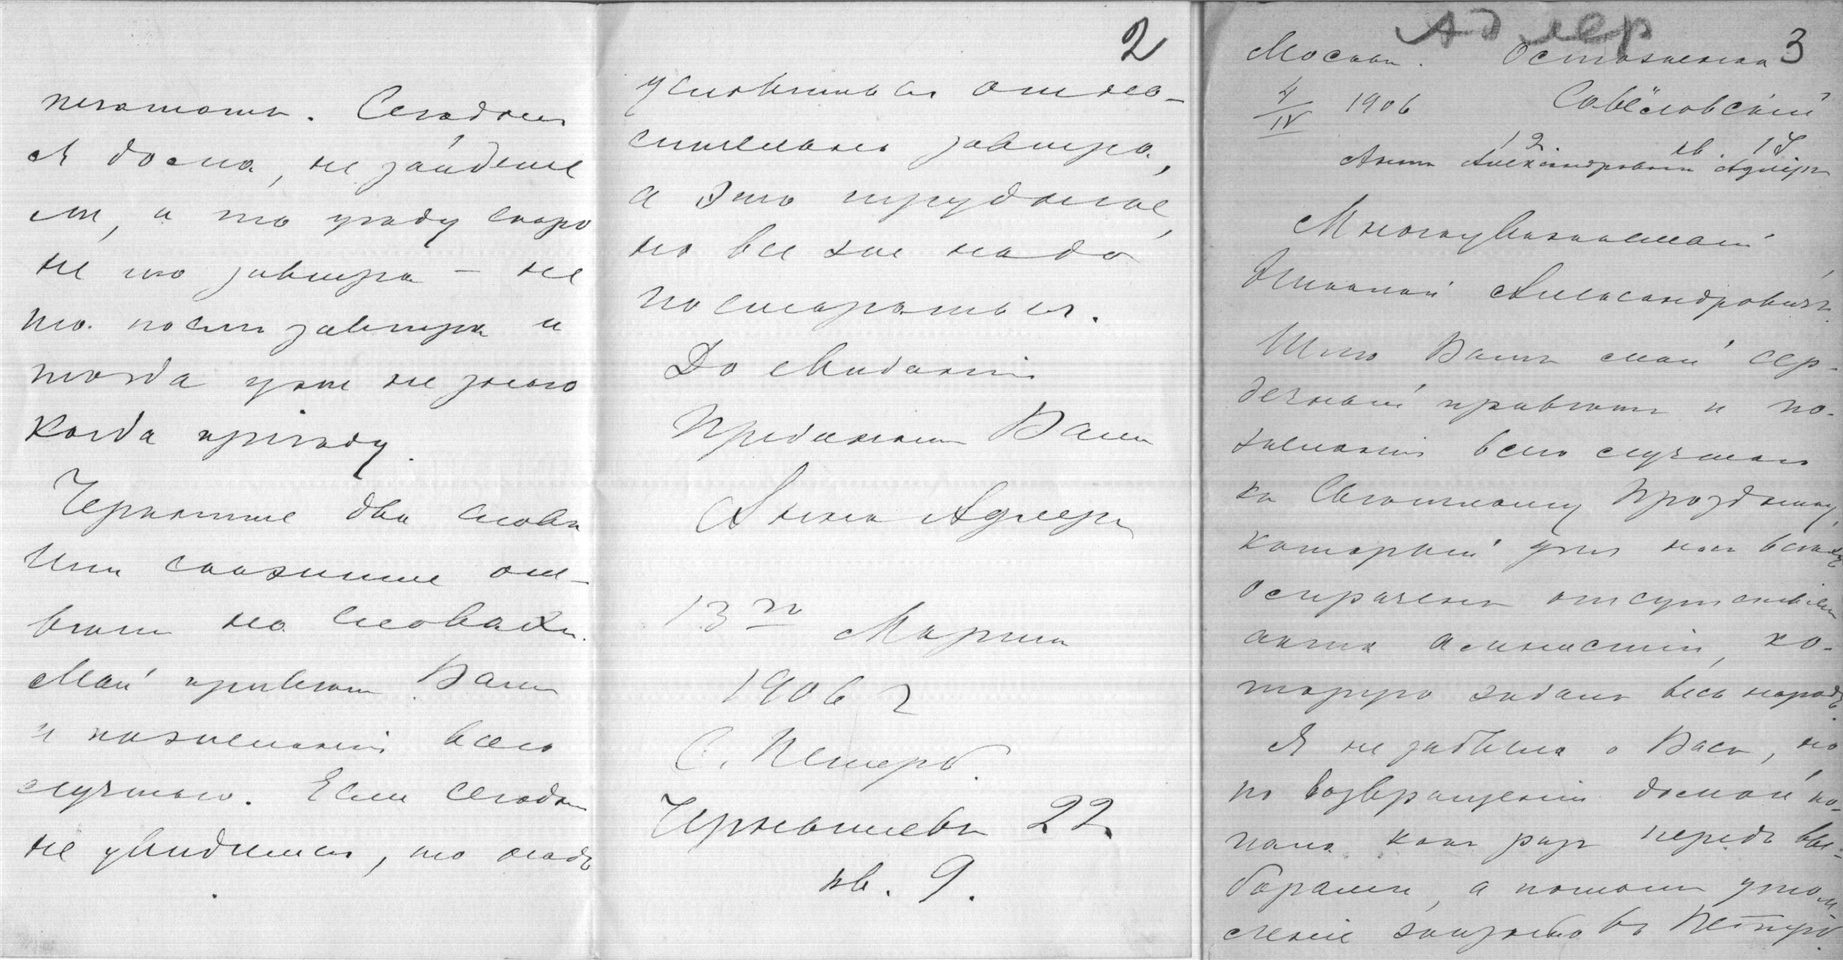 печатать. Сегодня
я дома, не зайдете
ли, а то уеду скоро
не то завтра – не
то после завтра и
тогда уже не знаю
когда приеду.
Черкните два слова
или скажите от-
вет на словах.
Мой привет Вам
и пожелания всего
лучшего. Если сегодня
не увидимся, то надо
2
условиться отно-
сительно завтра,
а это труднее,
но все же надо
постараться.
До свиданiя
Преданная Вам
Анна Адлер
13го Марта
1906 г
С. Петерб.
Чернышевъ 22
кв. 9.
Адлер
3
Москва. Остоженка
4/IV 1906 Савёловскiй
12 кв. 14
Анна Александровна Адлеръ
Многоуважаемый
Николай Александровичъ.
Шлю Вамъ мой сер-
дечный приветъ и по-
желанiя всего лучшаго
къ Светлому Празднику,
который у насъ всехъ
омраченъ отсутствiемъ
акта амнистiи, ко-
торую ждалъ весь народъ.
Я не забыла о Васъ, но
по возвращенiи домой по-
пала какъ разъ передъ вы-
борами, а потомъ утом-
ленiе въ Петерб.